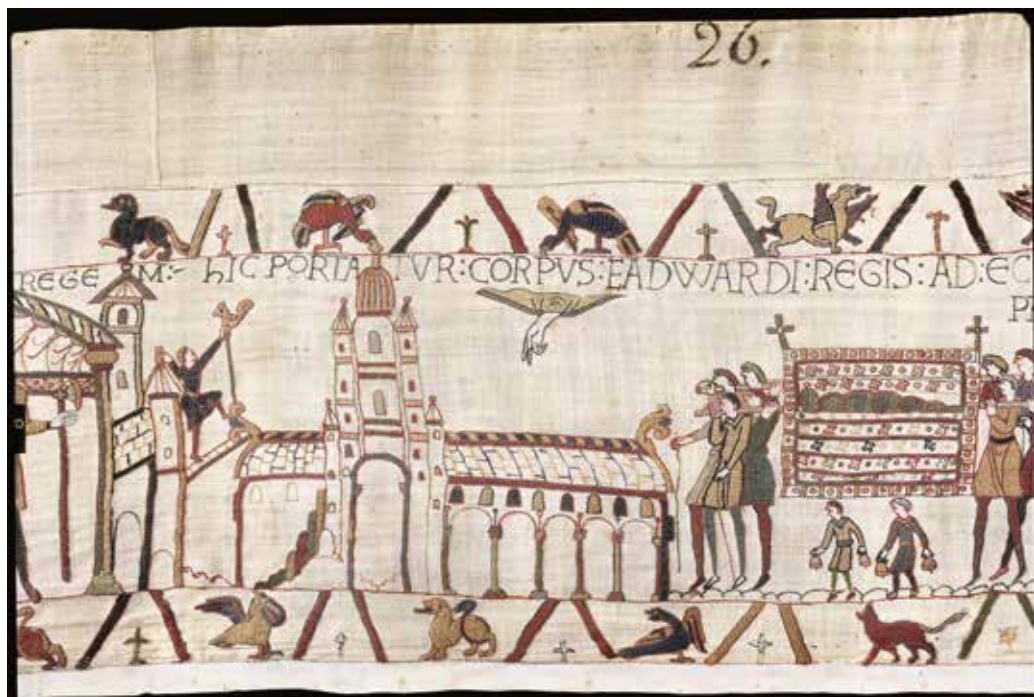 26.
REGE M:- hIC PORTATVR:CORPVS:EADWARDI:REGIS:AD:EC